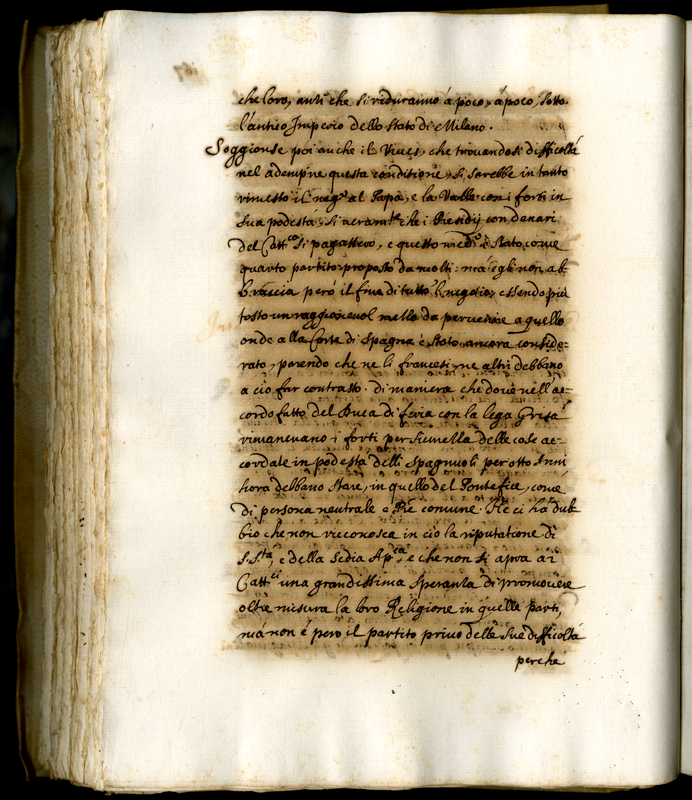 che loro, anzi che si riduranno à poco, à poco, sotto
l'antico Imperio dello Stato di Milano.
Soggionse poi anche il Vives, che trovandosi difficoltà
nel adempire questa conditione, si sarebbe in tanto
rimesso il neg.º al Papa, e la Valle con i forti in
sua podestà, si veram.te che i Presidij con denari
del Catt.co si pagassero, e questo è stato, come
quarto partito proposto da molti: mà egli non ab-
braccia però il fine di tutto il negotio, essendo più
tosto un raggionevol mezzo da pervenire a quello
onde alla Corte di Spagna è stato ancora conside-
rato, parendo che ne li francesi, ne altri debbano
a ciò far contrasto. di maniera che dove nell'ac-
cordo fatto del Duca di feria con la lega Grisa
rimanevano i forti per sicurezza delle cose ac-
cordate in podestà delli Spagnuoli per otto Anni
hora debbano stare, in quello del Pontefice, come
di persona neutrale e Pře comune. Ne ci hà dub-
bio che non riconosce in ciò la riputatione di
S. S.tà, e della Sedia Ap.ca, e che non si apra ai
Catt.ci una grandissima speranza di promovere
oltre misura la loro Religione in quelle parti,
mà non è però il partito privo delle sue difficoltà
perche